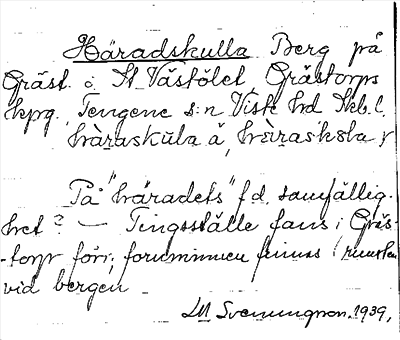 Häradskulla Berg på
Gräst. o. St Västölet, Grästorps
kpg. Tengene s:n Viste hd Skb.l.
hä̀raskùla å, hä̀raskùla f
På "häradets" f.d. samfällig-
het? — Tingsställe fans i Gräs-
-torp förr; fornminnen finnas i runten
vid bergen
LM Svenungson. 1939,